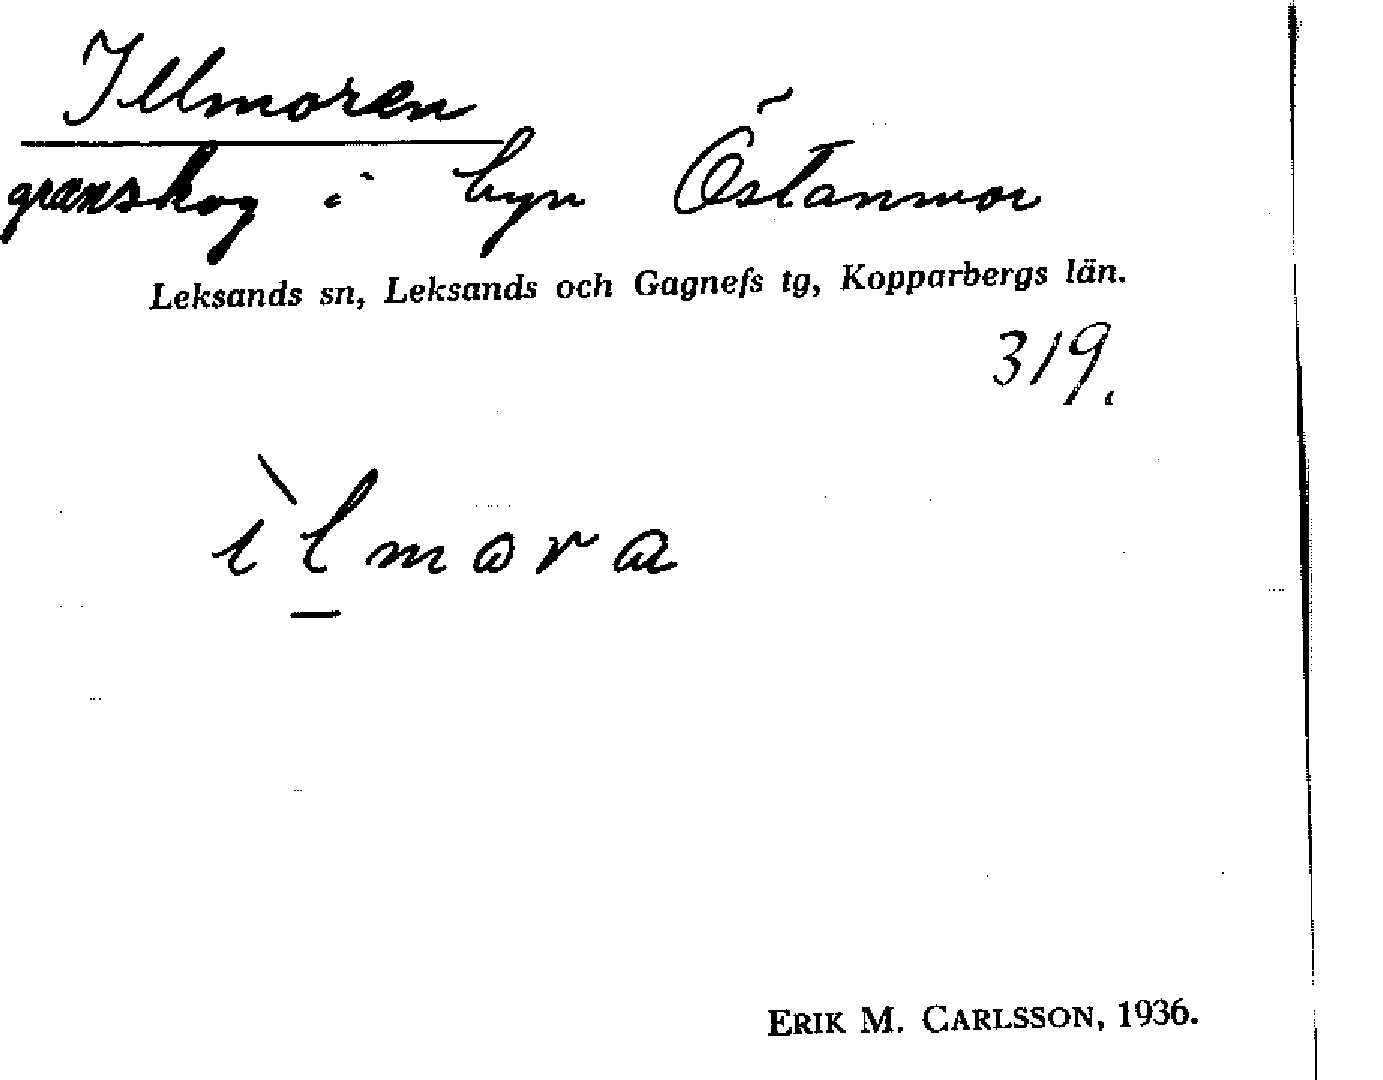 Illmoren
granskog i byn Östanmor
Leksands sn, Leksands och Gagnefs tg, Kopparbergs län.
319.
ìl̲mora
ERIK M. CARLSSON, 1936.